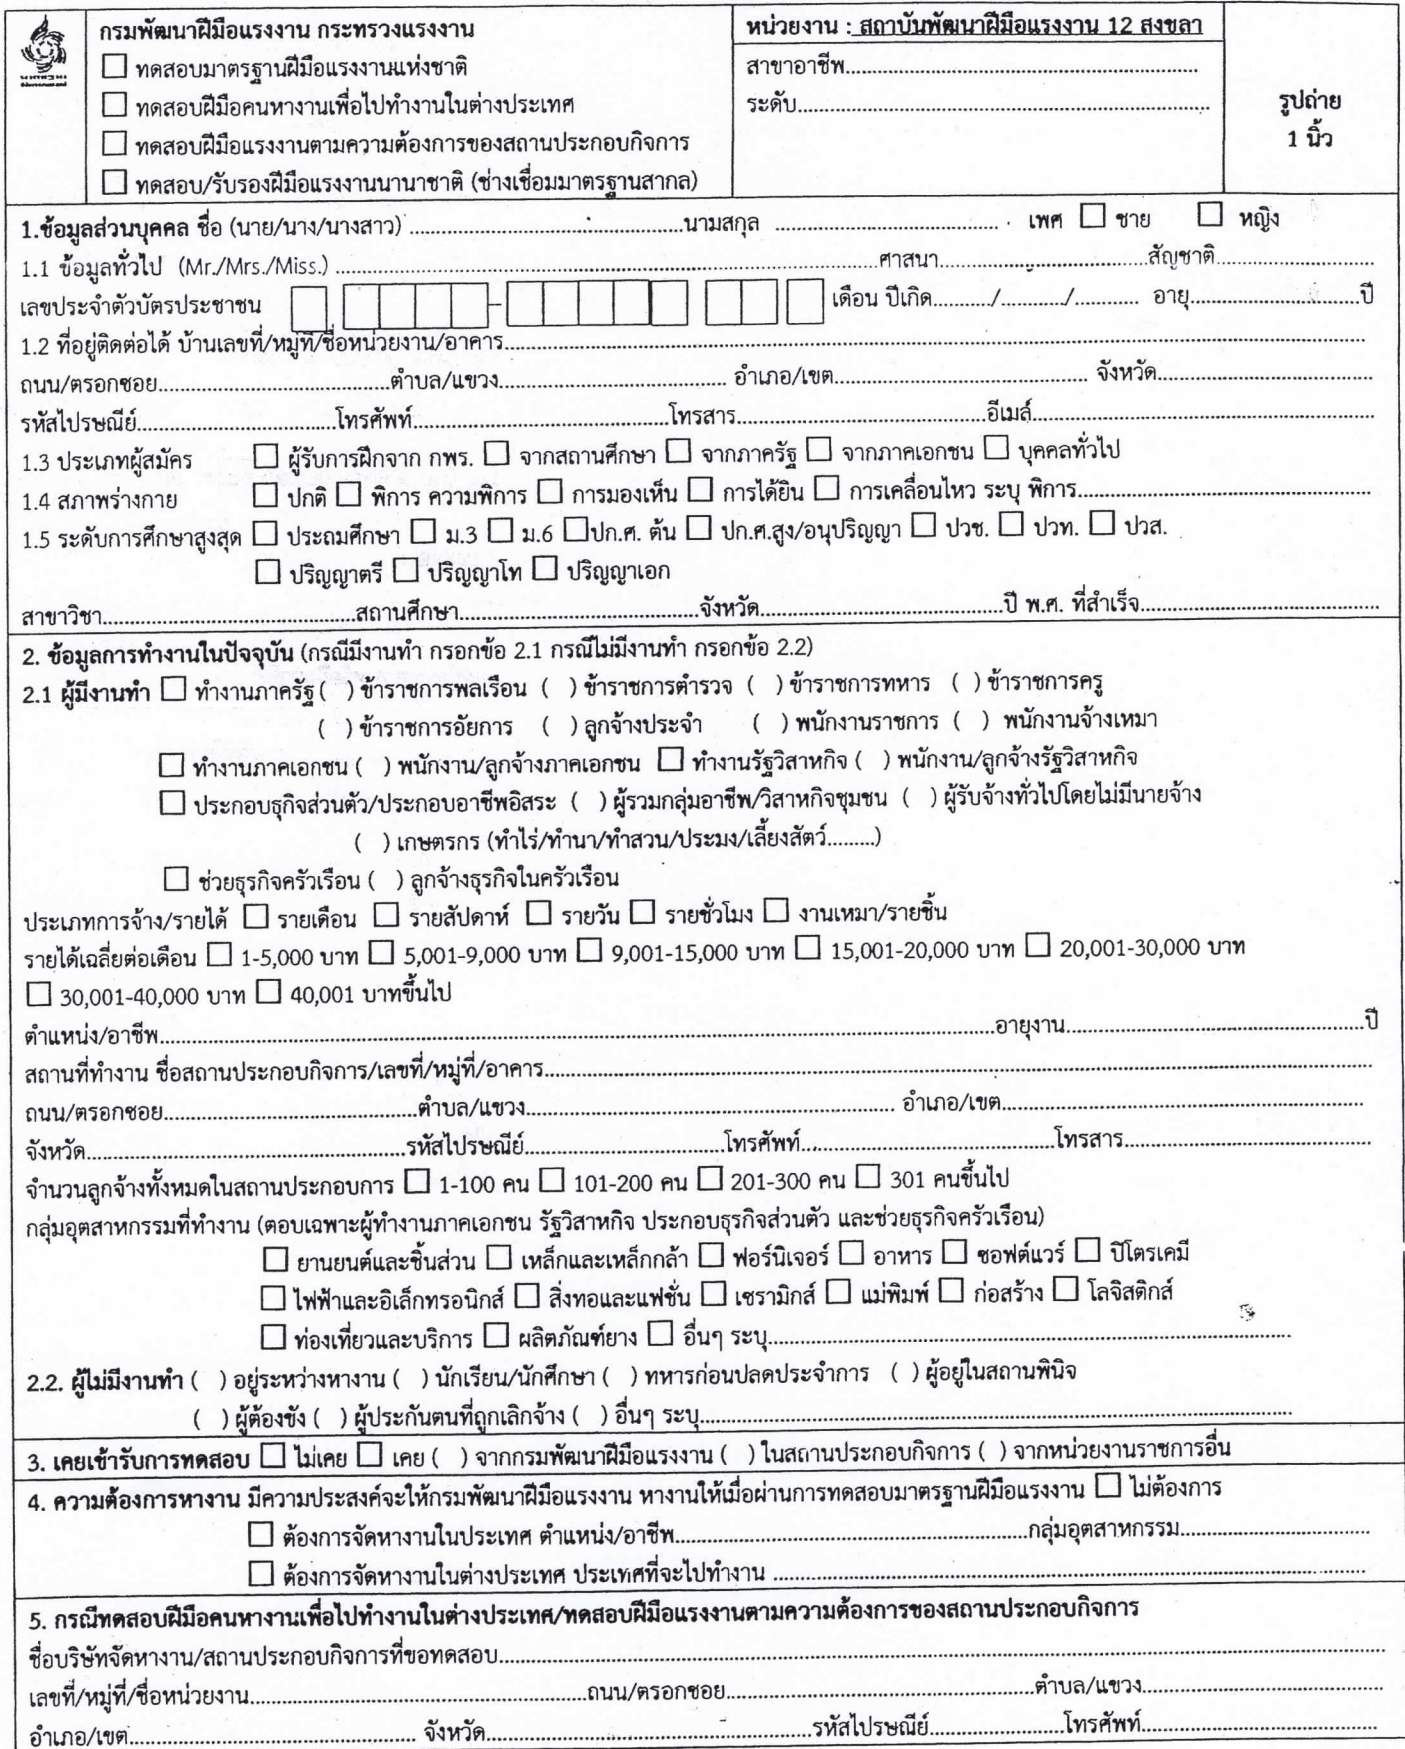 กรมพัฒนาฝีมือแรงงาน กระทรวงแรงงาน
☐ ทดสอบมาตรฐานฝีมือแรงงานแห่งชาติ
☐ ทดสอบฝีมือคนหางานเพื่อไปทำงานในต่างประเทศ
☐ ทดสอบฝีมือแรงงานตามความต้องการของสถานประกอบกิจการ
☐ ทดสอบ/รับรองฝีมือแรงงานนานาชาติ (ช่างเชื่อมมาตรฐานสากล)
หน่วยงาน : สถาบันพัฒนาฝีมือแรงงาน 12 สงขลา
สาขาอาชีพ..........
ระดับ..........
รูปถ่าย
1 นิ้ว
1.ข้อมูลส่วนบุคคล ชื่อ (นาย/นาง/นางสาว) ..........นามสกุล .......... เพศ ☐ ชาย ☐ หญิง
1.1 ข้อมูลทั่วไป (Mr./Mrs./Miss.) ..........ศาสนา..........สัญชาติ..........
เลขประจำตัวบัตรประชาชน ☐ ☐☐☐☐–☐☐☐☐☐ ☐☐ ☐ เดือน ปีเกิด........../........../.......... อายุ..........ปี
1.2 ที่อยู่ติดต่อได้ บ้านเลขที่/หมู่ที่/ชื่อหน่วยงาน/อาคาร..........
ถนน/ตรอกซอย..........ตำบล/แขวง.......... อำเภอ/เขต.......... จังหวัด..........
รหัสไปรษณีย์..........โทรศัพท์..........โทรสาร..........อีเมล์..........
1.3 ประเภทผู้สมัคร ☐ ผู้รับการฝึกจาก กพร. ☐ จากสถานศึกษา ☐ จากภาครัฐ ☐ จากภาคเอกชน ☐ บุคคลทั่วไป
1.4 สภาพร่างกาย ☐ ปกติ ☐ พิการ ความพิการ ☐ การมองเห็น ☐ การได้ยิน ☐ การเคลื่อนไหว ระบุ พิการ..........
1.5 ระดับการศึกษาสูงสุด ☐ ประถมศึกษา ☐ ม.3 ☐ ม.6 ☐ปก.ศ. ต้น ☐ ปก.ศ.สูง/อนุปริญญา ☐ ปวช. ☐ ปวท. ☐ ปวส.
☐ ปริญญาตรี ☐ ปริญญาโท ☐ ปริญญาเอก
สาขาวิชา..........สถานศึกษา..........จังหวัด..........ปี พ.ศ. ที่สำเร็จ..........
2. ข้อมูลการทำงานในปัจจุบัน (กรณีมีงานทำ กรอกข้อ 2.1 กรณีไม่มีงานทำ กรอกข้อ 2.2)
2.1 ผู้มีงานทำ ☐ ทำงานภาครัฐ ( ) ข้าราชการพลเรือน ( ) ข้าราชการตำรวจ ( ) ข้าราชการทหาร ( ) ข้าราชการครู
( ) ข้าราชการอัยการ ( ) ลูกจ้างประจำ ( ) พนักงานราชการ ( ) พนักงานจ้างเหมา
☐ ทำงานภาคเอกชน ( ) พนักงาน/ลูกจ้างภาคเอกชน ☐ ทำงานรัฐวิสาหกิจ ( ) พนักงาน/ลูกจ้างรัฐวิสาหกิจ
☐ ประกอบธุกิจส่วนตัว/ประกอบอาชีพอิสระ ( ) ผู้รวมกลุ่มอาชีพ/วิสาหกิจชุมชน ( ) ผู้รับจ้างทั่วไปโดยไม่มีนายจ้าง
( ) เกษตรกร (ทำไร่/ทำนา/ทำสวน/ประมง/เลี้ยงสัตว์.........)
☐ ช่วยธุรกิจครัวเรือน ( ) ลูกจ้างธุรกิจในครัวเรือน
ประเภทการจ้าง/รายได้ ☐ รายเดือน ☐ รายสัปดาห์ ☐ รายวัน ☐ รายชั่วโมง ☐ งานเหมา/รายชิ้น
รายได้เฉลี่ยต่อเดือน ☐ 1-5,000 บาท ☐ 5,001-9,000 บาท ☐ 9,001-15,000 บาท ☐ 15,001-20,000 บาท ☐ 20,001-30,000 บาท
☐ 30,001-40,000 บาท ☐ 40,001 บาทขึ้นไป
ตำแหน่ง/อาชีพ..........อายุงาน..........ปี
สถานที่ทำงาน ชื่อสถานประกอบกิจการ/เลขที่/หมู่ที่/อาคาร..........
ถนน/ตรอกซอย..........ตำบล/แขวง.......... อำเภอ/เขต..........
จังหวัด..........รหัสไปรษณีย์..........โทรศัพท์..........โทรสาร..........
จำนวนลูกจ้างทั้งหมดในสถานประกอบการ ☐ 1-100 คน ☐ 101-200 คน ☐ 201-300 คน ☐ 301 คนขึ้นไป
กลุ่มอุตสาหกรรมที่ทำงาน (ตอบเฉพาะผู้ทำงานภาคเอกชน รัฐวิสาหกิจ ประกอบธุรกิจส่วนตัว และช่วยธุรกิจครัวเรือน)
☐ ยานยนต์และชิ้นส่วน ☐ เหล็กและเหล็กกล้า ☐ ฟอร์นิเจอร์ ☐ อาหาร ☐ ซอฟต์แวร์ ☐ ปิโตรเคมี
☐ ไฟฟ้าและอิเล็กทรอนิกส์ ☐ สิ่งทอและแฟชั่น ☐ เซรามิกส์ ☐ แม่พิมพ์ ☐ ก่อสร้าง ☐ โลจิสติกส์
☐ ท่องเที่ยวและบริการ ☐ ผลิตภัณฑ์ยาง ☐ อื่นๆ ระบุ..........
2.2. ผู้ไม่มีงานทำ ( ) อยู่ระหว่างหางาน ( ) นักเรียน/นักศึกษา ( ) ทหารก่อนปลดประจำการ ( ) ผู้อยู่ในสถานพินิจ
( ) ผู้ต้องขัง ( ) ผู้ประกันตนที่ถูกเลิกจ้าง ( ) อื่นๆ ระบุ..........
3. เคยเข้ารับการทดสอบ ☐ ไม่เคย ☐ เคย ( ) จากกรมพัฒนาฝีมือแรงงาน ( ) ในสถานประกอบกิจการ ( ) จากหน่วยงานราชการอื่น
4. ความต้องการหางาน มีความประสงค์จะให้กรมพัฒนาฝีมือแรงงาน หางานให้เมื่อผ่านการทดสอบมาตรฐานฝีมือแรงงาน ☐ ไม่ต้องการ
☐ ต้องการจัดหางานในประเทศ ตำแหน่ง/อาชีพ..........กลุ่มอุตสาหกรรม..........
☐ ต้องการจัดหางานในต่างประเทศ ประเทศที่จะไปทำงาน ..........
5. กรณีทดสอบฝีมือคนหางานเพื่อไปทำงานในต่างประเทศ/ทดสอบฝีมือแรงงานตามความต้องการของสถานประกอบกิจการ
ชื่อบริษัทจัดหางาน/สถานประกอบกิจการที่ขอทดสอบ..........
เลขที่/หมู่ที่/ชื่อหน่วยงาน..........ถนน/ตรอกซอย..........ตำบล/แขวง..........
อำเภอ/เขต.......... จังหวัด..........รหัสไปรษณีย์..........โทรศัพท์..........